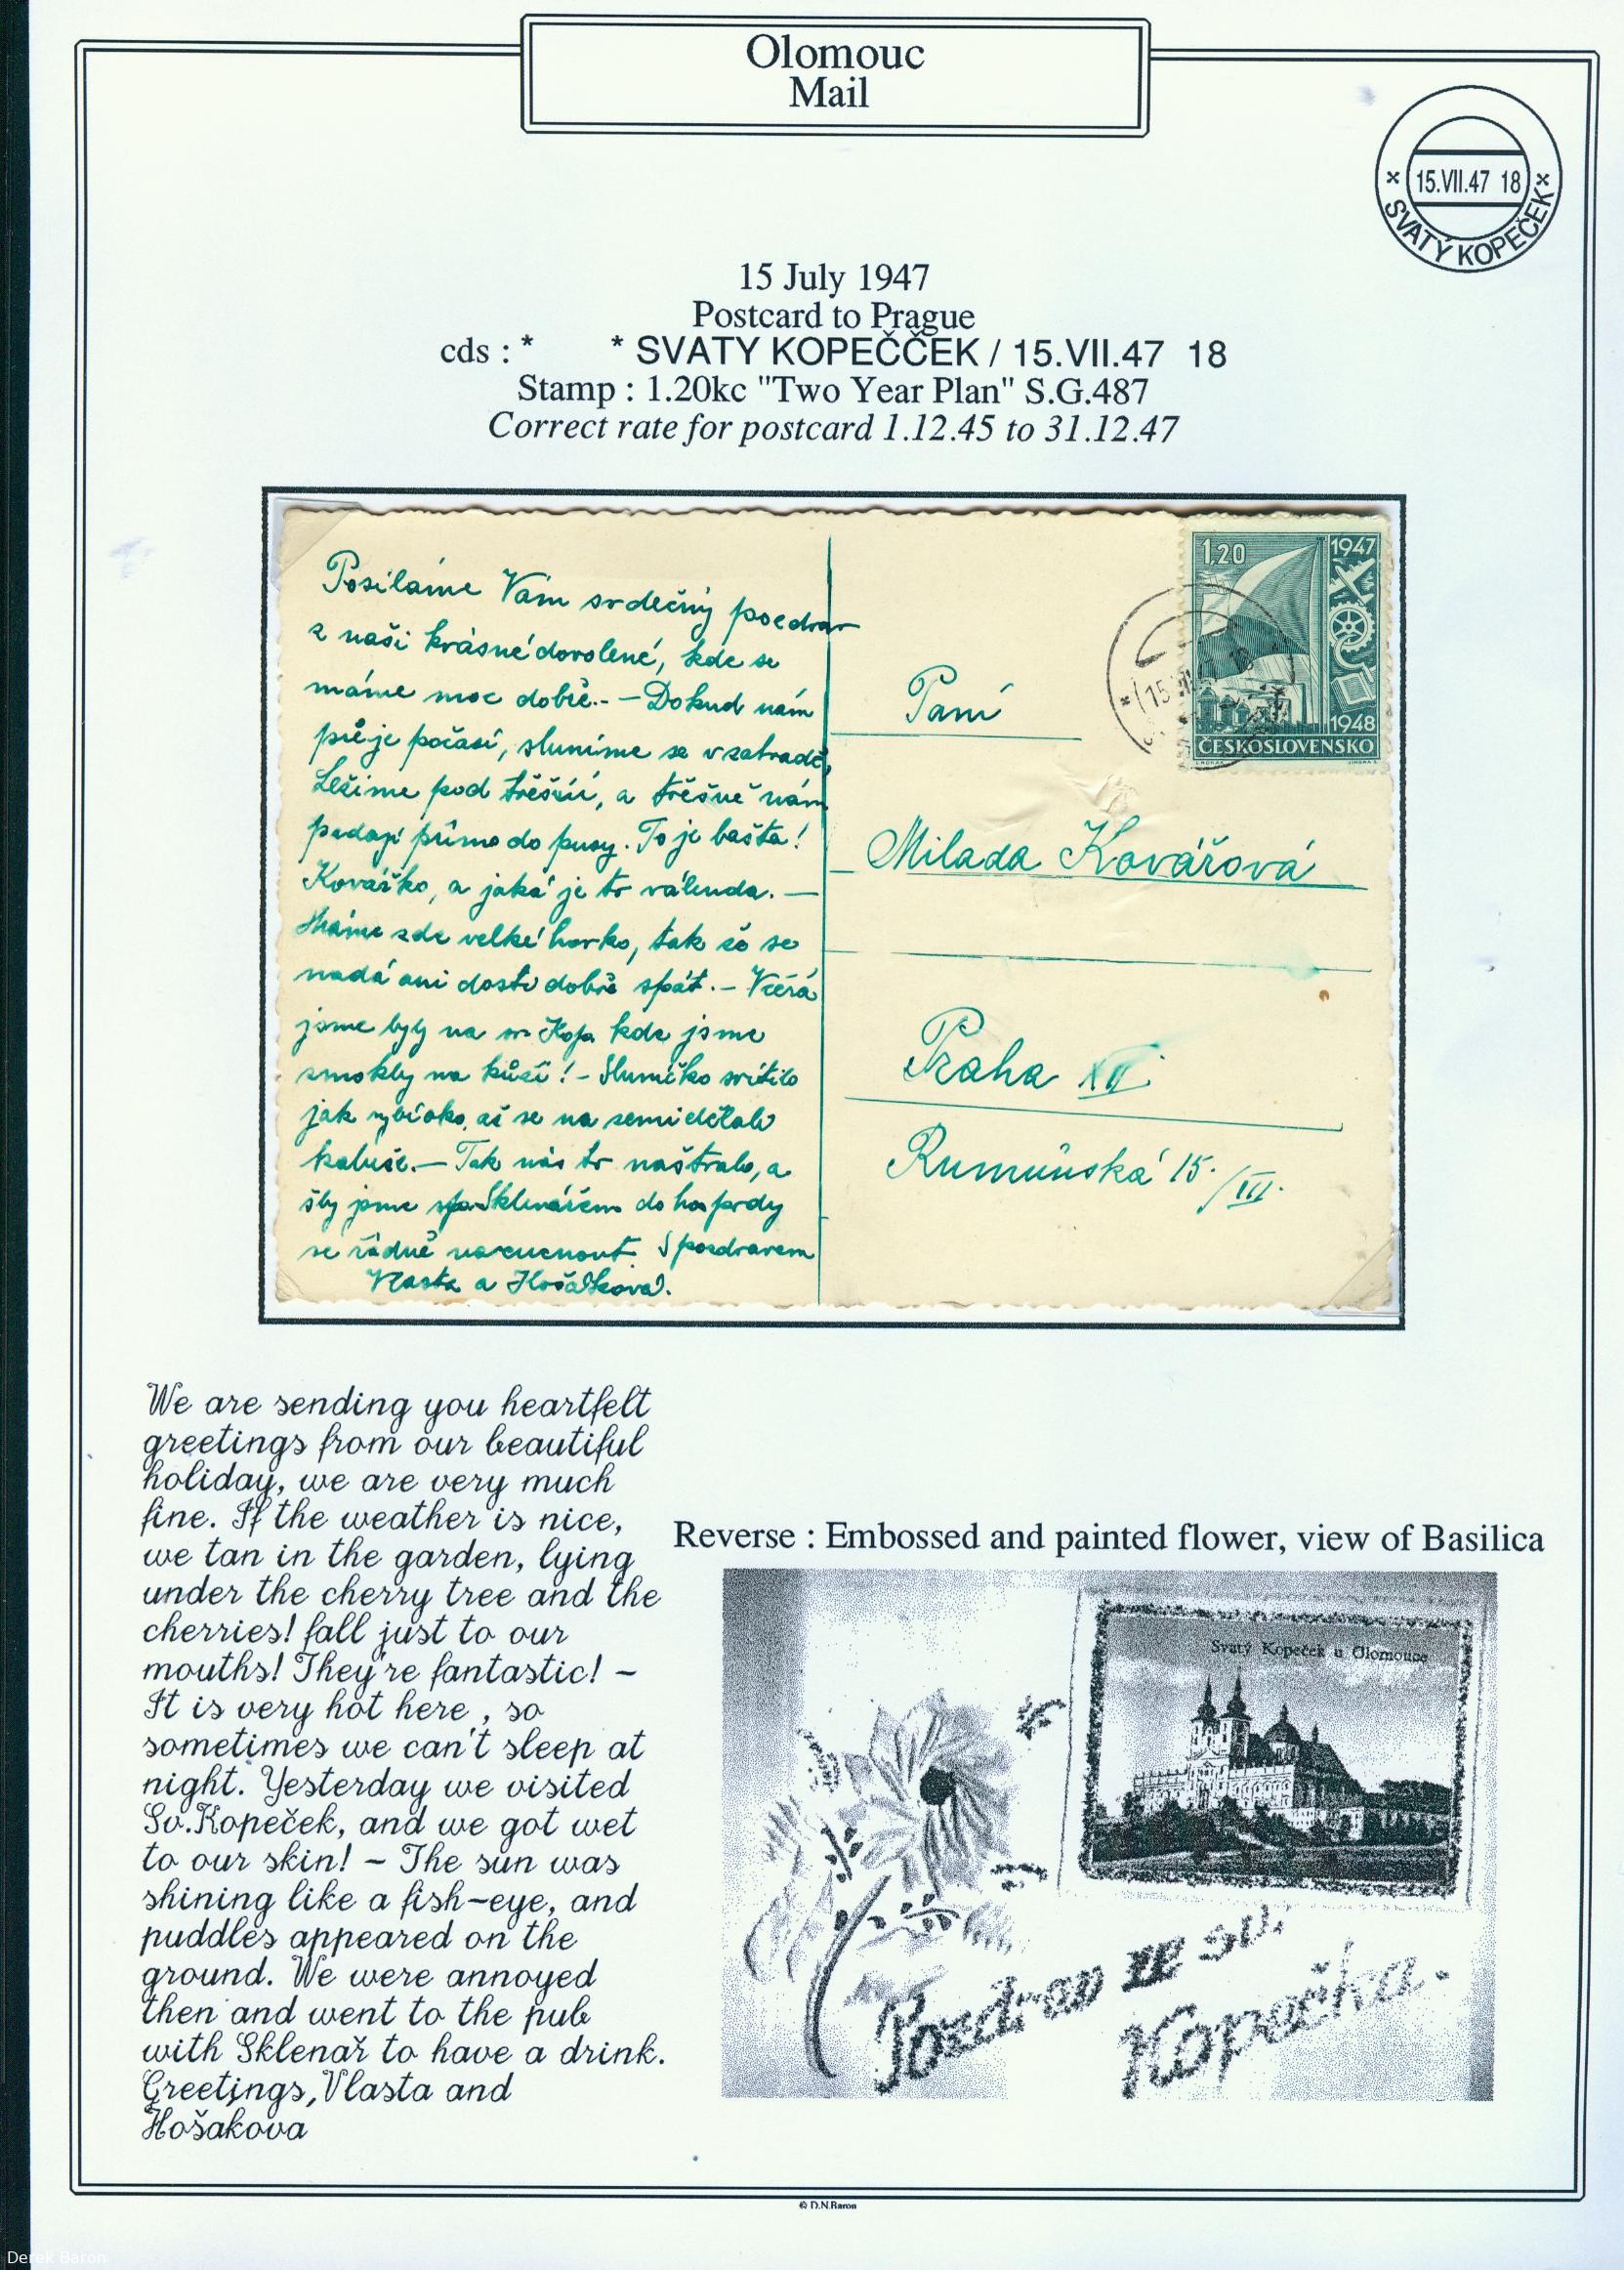 Olomouc
Mail
* 15.VII.47 18 *
SVATÝ KOPEČEK
15 July 1947
Postcard to Prague
cds : * * SVATY KOPEČČEK / 15.VII.47 18
Stamp : 1.20kc "Two Year Plan" S.G.487
Correct rate for postcard 1.12.45 to 31.12.47
Posíláme Vám srdečný pozdrav
z naší krásné dovolené, kde se
máme moc dobře.- — Dokud nám
přeje počasí, sluníme se v zahradě,
Ležíme pod třešní, a třešně nám
padají přímo do pusy. To je bašta!
Kovářko, a jaká je to válenda. —
Máme zde velké horko, tak že se
nedá ani dosti dobře spát. — Včera
jsme byly na sv. Kop. kde jsme
zmokly na kůži! - Sluníčko svítilo
jak rybí oko, až se na zemi dělali
kaluže. — Tak nás to naštvalo, a
šly jsme Sklenářem do hospody
se řádně nacucnout. S pozdravem
Vlasta a Hošáková.
1,20
1947
1948
ČESKOSLOVENSKO
15
Paní
Milada Kovářová
Praha XII.
Rumunská 15./III.
We are sending you heartfelt
greetings from our beautiful
holiday, we are very much
fine. If the weather is nice,
we tan in the garden, lying
under the cherry tree and the
cherries! fall just to our
mouths! They're fantastic! -
It is very hot here , so
sometimes we can't sleep at
night. Yesterday we visited
Sv.Kopeček, and we got wet
to our skin! - The sun was
shining like a fish-eye, and
puddles appeared on the
ground. We were annoyed
then and went to the pub
with Sklenař to have a drink.
Greetings, Vlasta and
Hošakova
Reverse : Embossed and painted flower, view of Basilica
Svatý Kopeček u Olomouce
Pozdrav ze sv.
Kopečka.
© D.N.Baron
Derek Baron